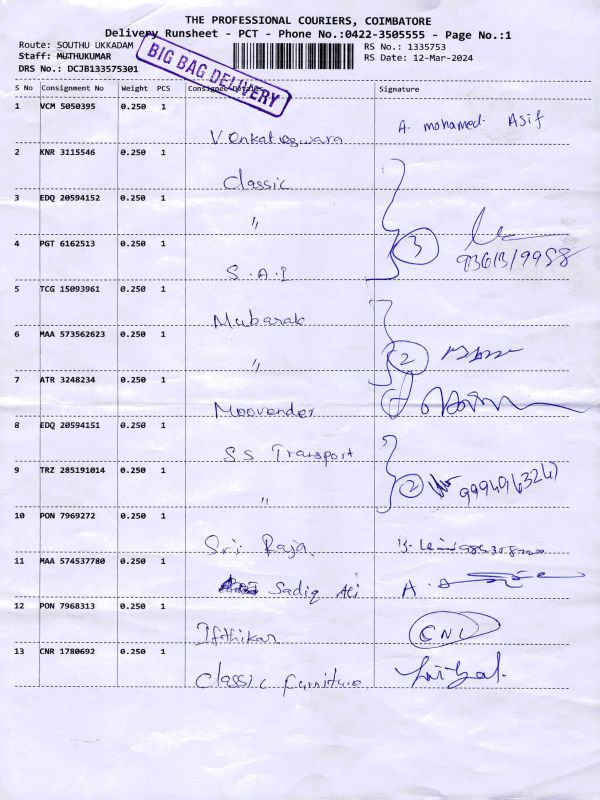 THE PROFESSIONAL COURIERS, COIMBATORE
Delivery Runsheet - PCT - Phone No.:0422-3505555 - Page No.:1
Route: SOUTHU UKKADAM
RS No.: 1335753
Staff: MUTHUKUMAR
RS Date: 12-Mar-2024
DRS No.: DCJB133575301
BIG BAG DELIVERY
S No Consignment No Weight PCS Consignee Details Signature
1 VCM 5050395 0.250 1
Venkateswara A. mohamed. Asif
2 KNR 3115546 0.250 1
Classic
3 EDQ 20594152 0.250 1
"
4 PGT 6162513 0.250 1
3
S.A.I
5 TCG 15093961 0.250 1
Mubarak
6 MAA 573562623 0.250 1
" 2
7 ATR 3248234 0.250 1
Moovender
8 EDQ 20594151 0.250 1
SS Transport
9 TRZ 285191014 0.250 1
" 2
10 PON 7969272 0.250 1
Sri Raja.
11 MAA 574537780 0.250 1
Sadiq Ali A.
12 PON 7968313 0.250 1
Ifthikar CNL
13 CNR 1780692 0.250 1
Classic furniture